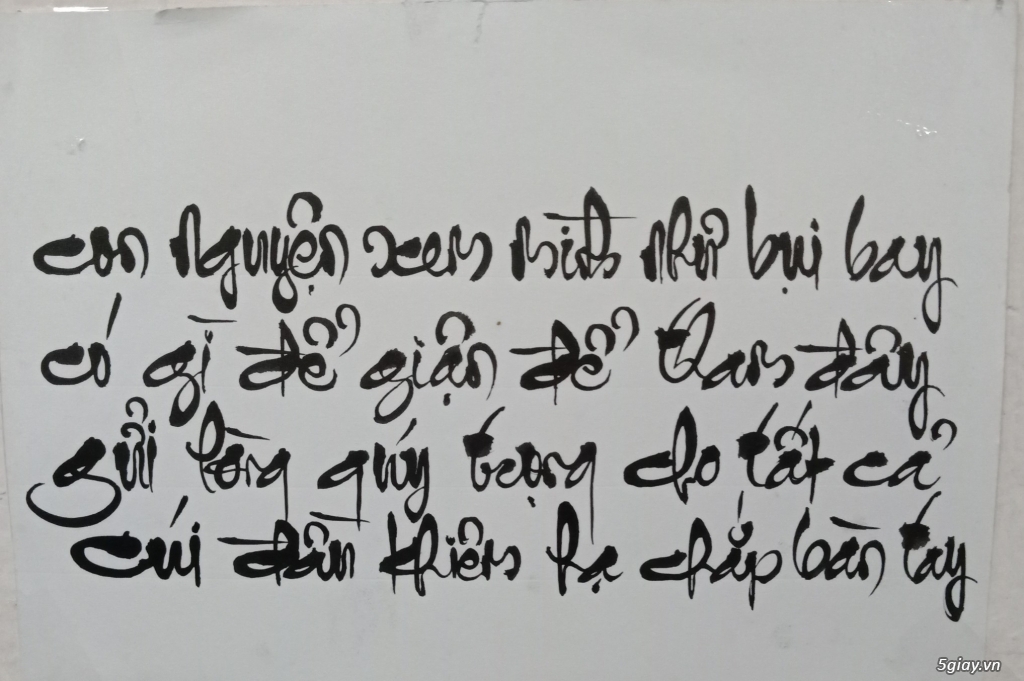 con nguyện xem mình như bụi bay
có gì để giận để tham đây
gửi lòng quý trọng cho tất cả
cúi đầu khiêm hạ chắp bàn tay
5giay.vn